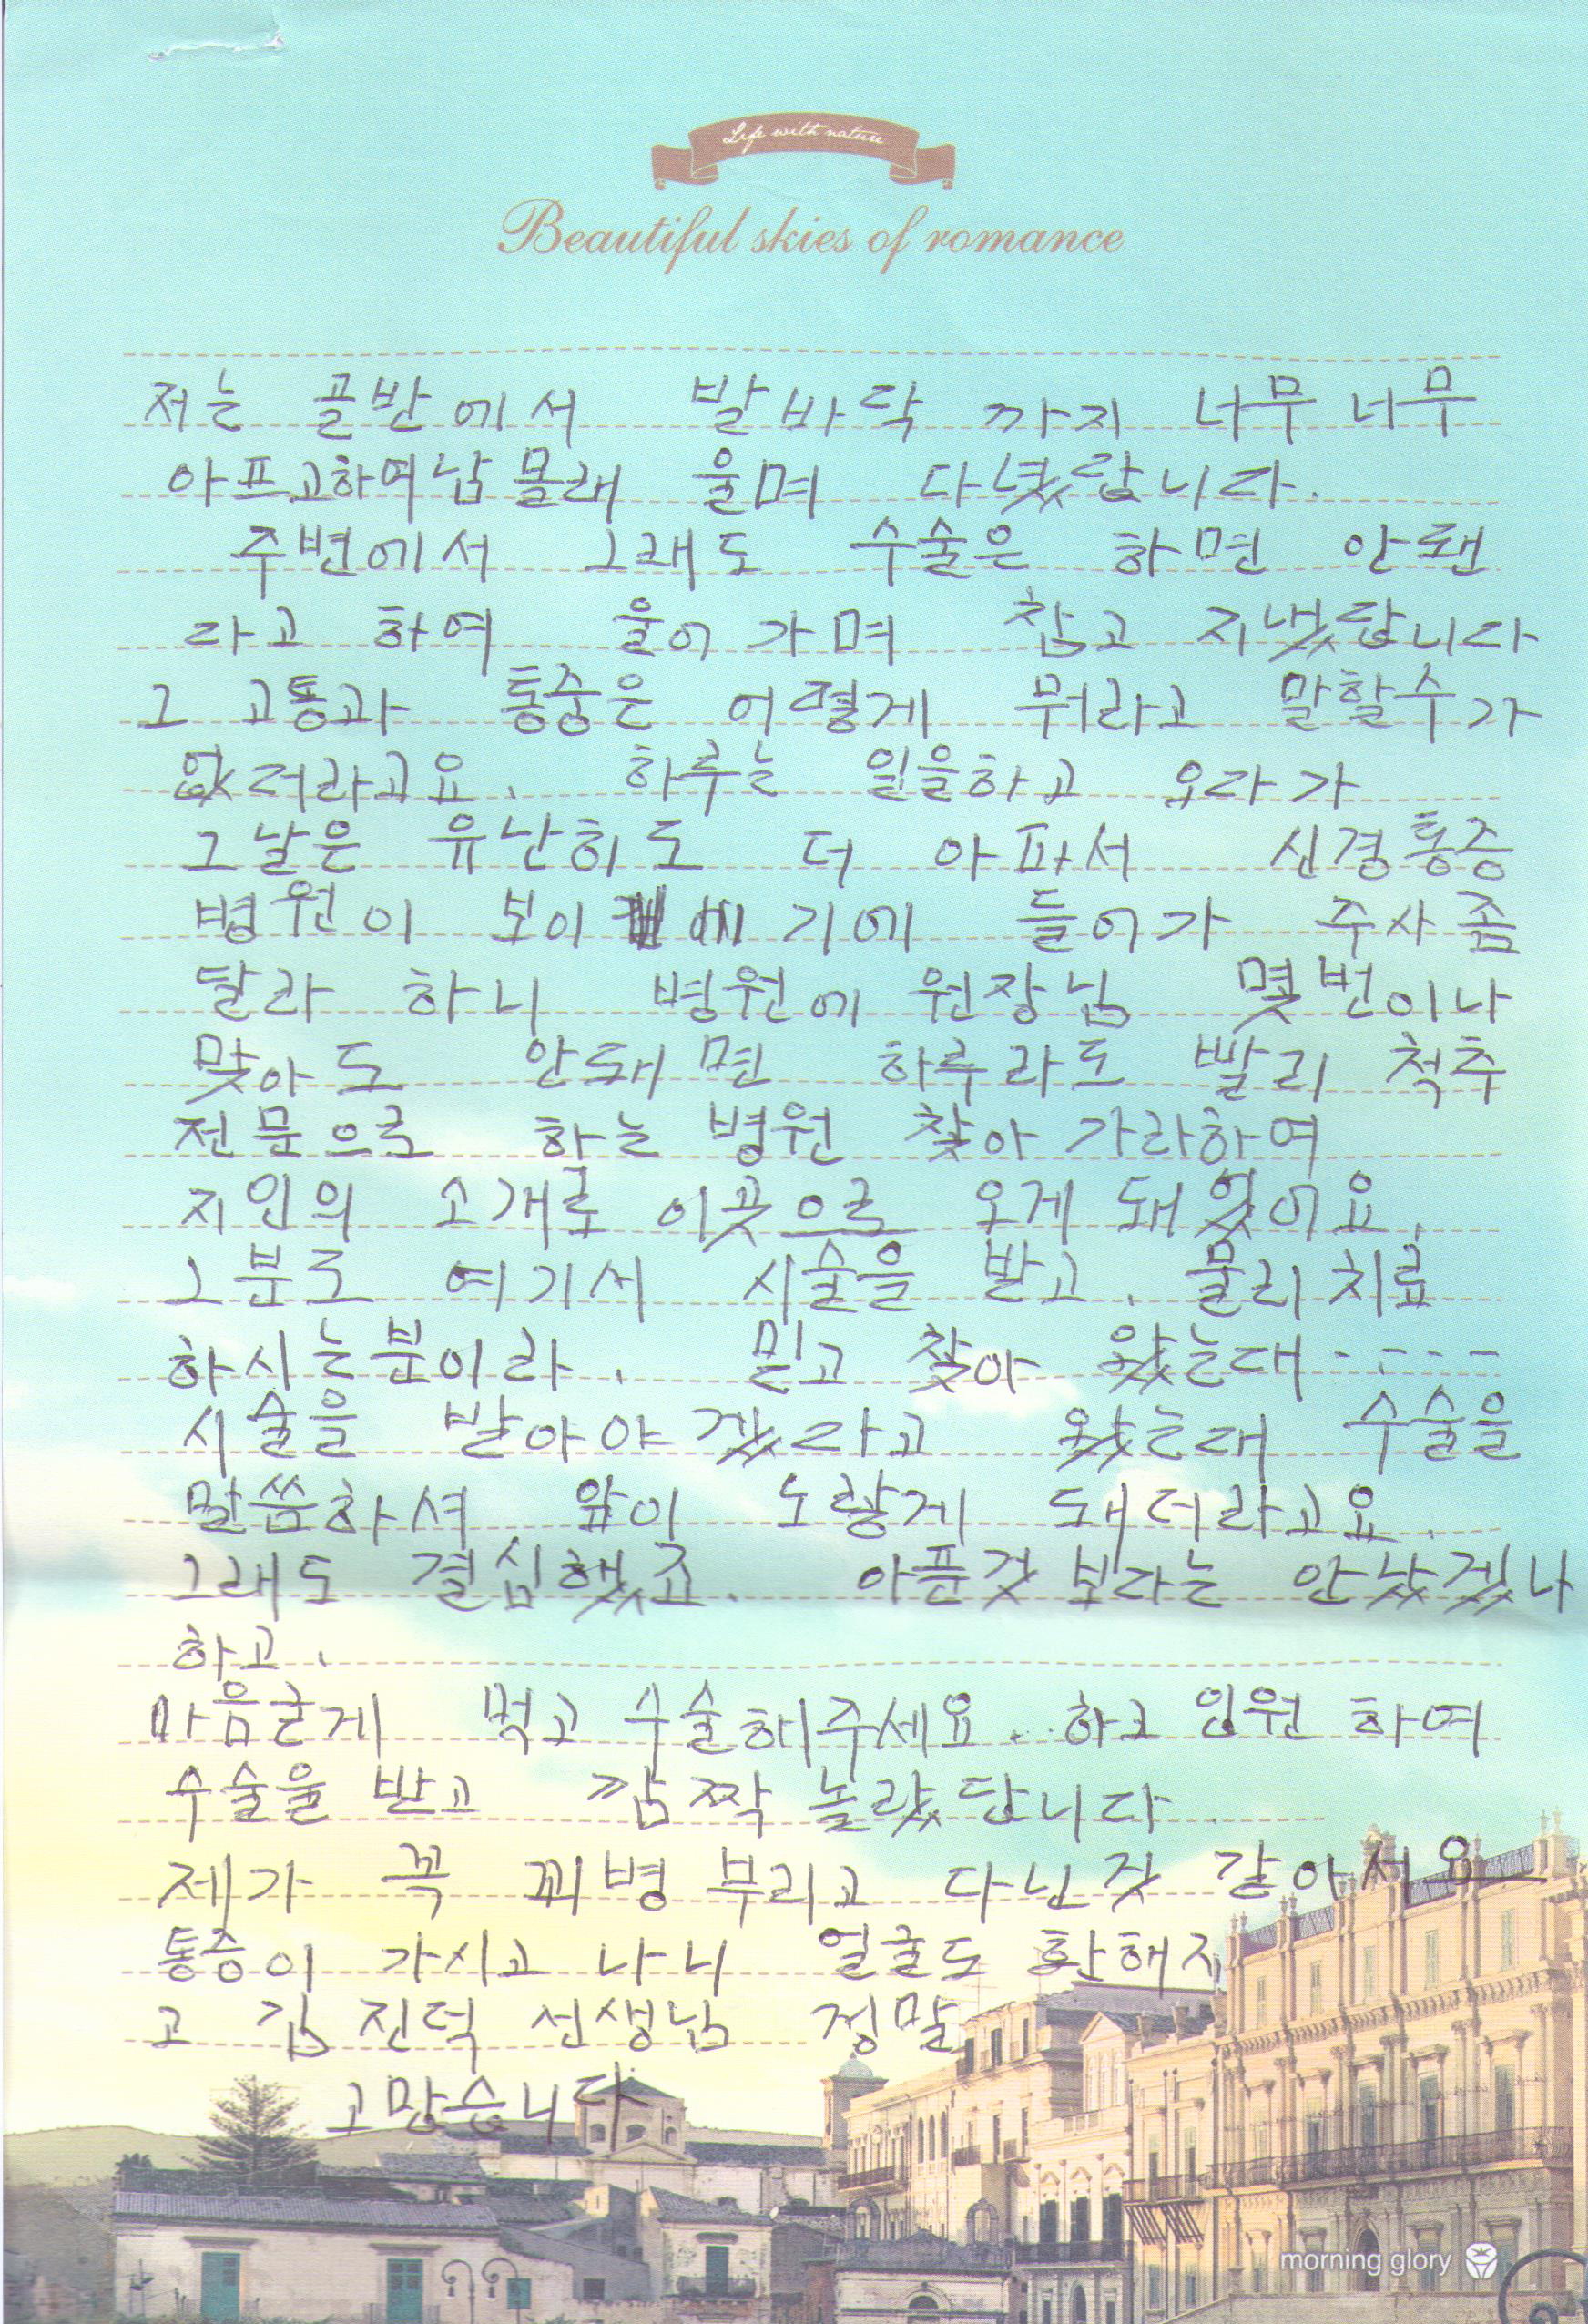 Life with nature
Beautiful skies of romance
저는 골반에서 발바닥 까지 너무너무
아프고하여남몰래 울며 다녔답니다.
주변에서 그래도 수술은 하면 안됀
라고 하여 울어가며 참고 지냈답니다
그 고통과 통중은 어떻게 뭐라고 말할수가
없더라고요. 하루는 일을하고 오다가
그날은 유난히도 더 아파서 신경통증
병원이 보이 기에 들어가 주사좀
달라 하니 병원에 원장님 몇번이나
맞아도 안돼면 하루라도 빨리 척추
전문으로 하는 병원 찾아가라하여
지인의 소개로 이곳으로 오게 돼었어요.
그분도 여기서 시술을 받고. 물리치료
하시는분이라. 믿고 찾아 왔는대-----
시술을 받아야겠다고 왔는대 수술을
말씀하셔 앞이 노랗게 돼더라고요.
그래도 결심했죠. 아픈것보다는 안낫겠나
하고.
마음굳게 먹고 수술해주세요. 하고 입원 하여
수술을 받고 깜짝 놀랐답니다.
제가 꼭 꾀병부리고 다닌것 같아서요
통증이 가시고 나니 얼굴도 환해지
고 김진덕 선생님 정말
고맙습니다
morning glory